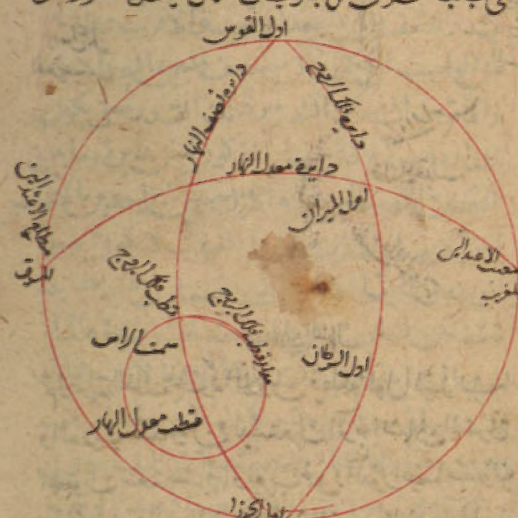 اول القوس
دايرة نصف النهار
دايره فلك البروج
دايرة معدل النهار
اول الميزان
مطلع الاعتدالين
المشرق
مغيب الاعتدالين
المغرب
قطب فلك البروج
مدار قطب فلك البروج
سمت الراس
اول السرطان
قطب معدل النهار
اول الجوزا